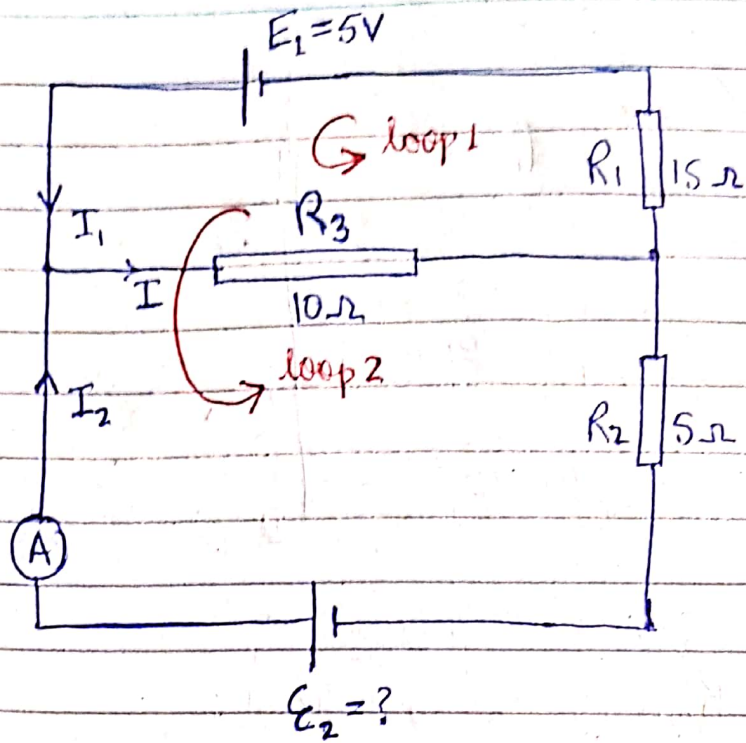 E₁=5V
loop1
R₁
15Ω
I₁
R₃
I
10Ω
loop2
I₂
R₂
5Ω
A
Ɛ₂=?